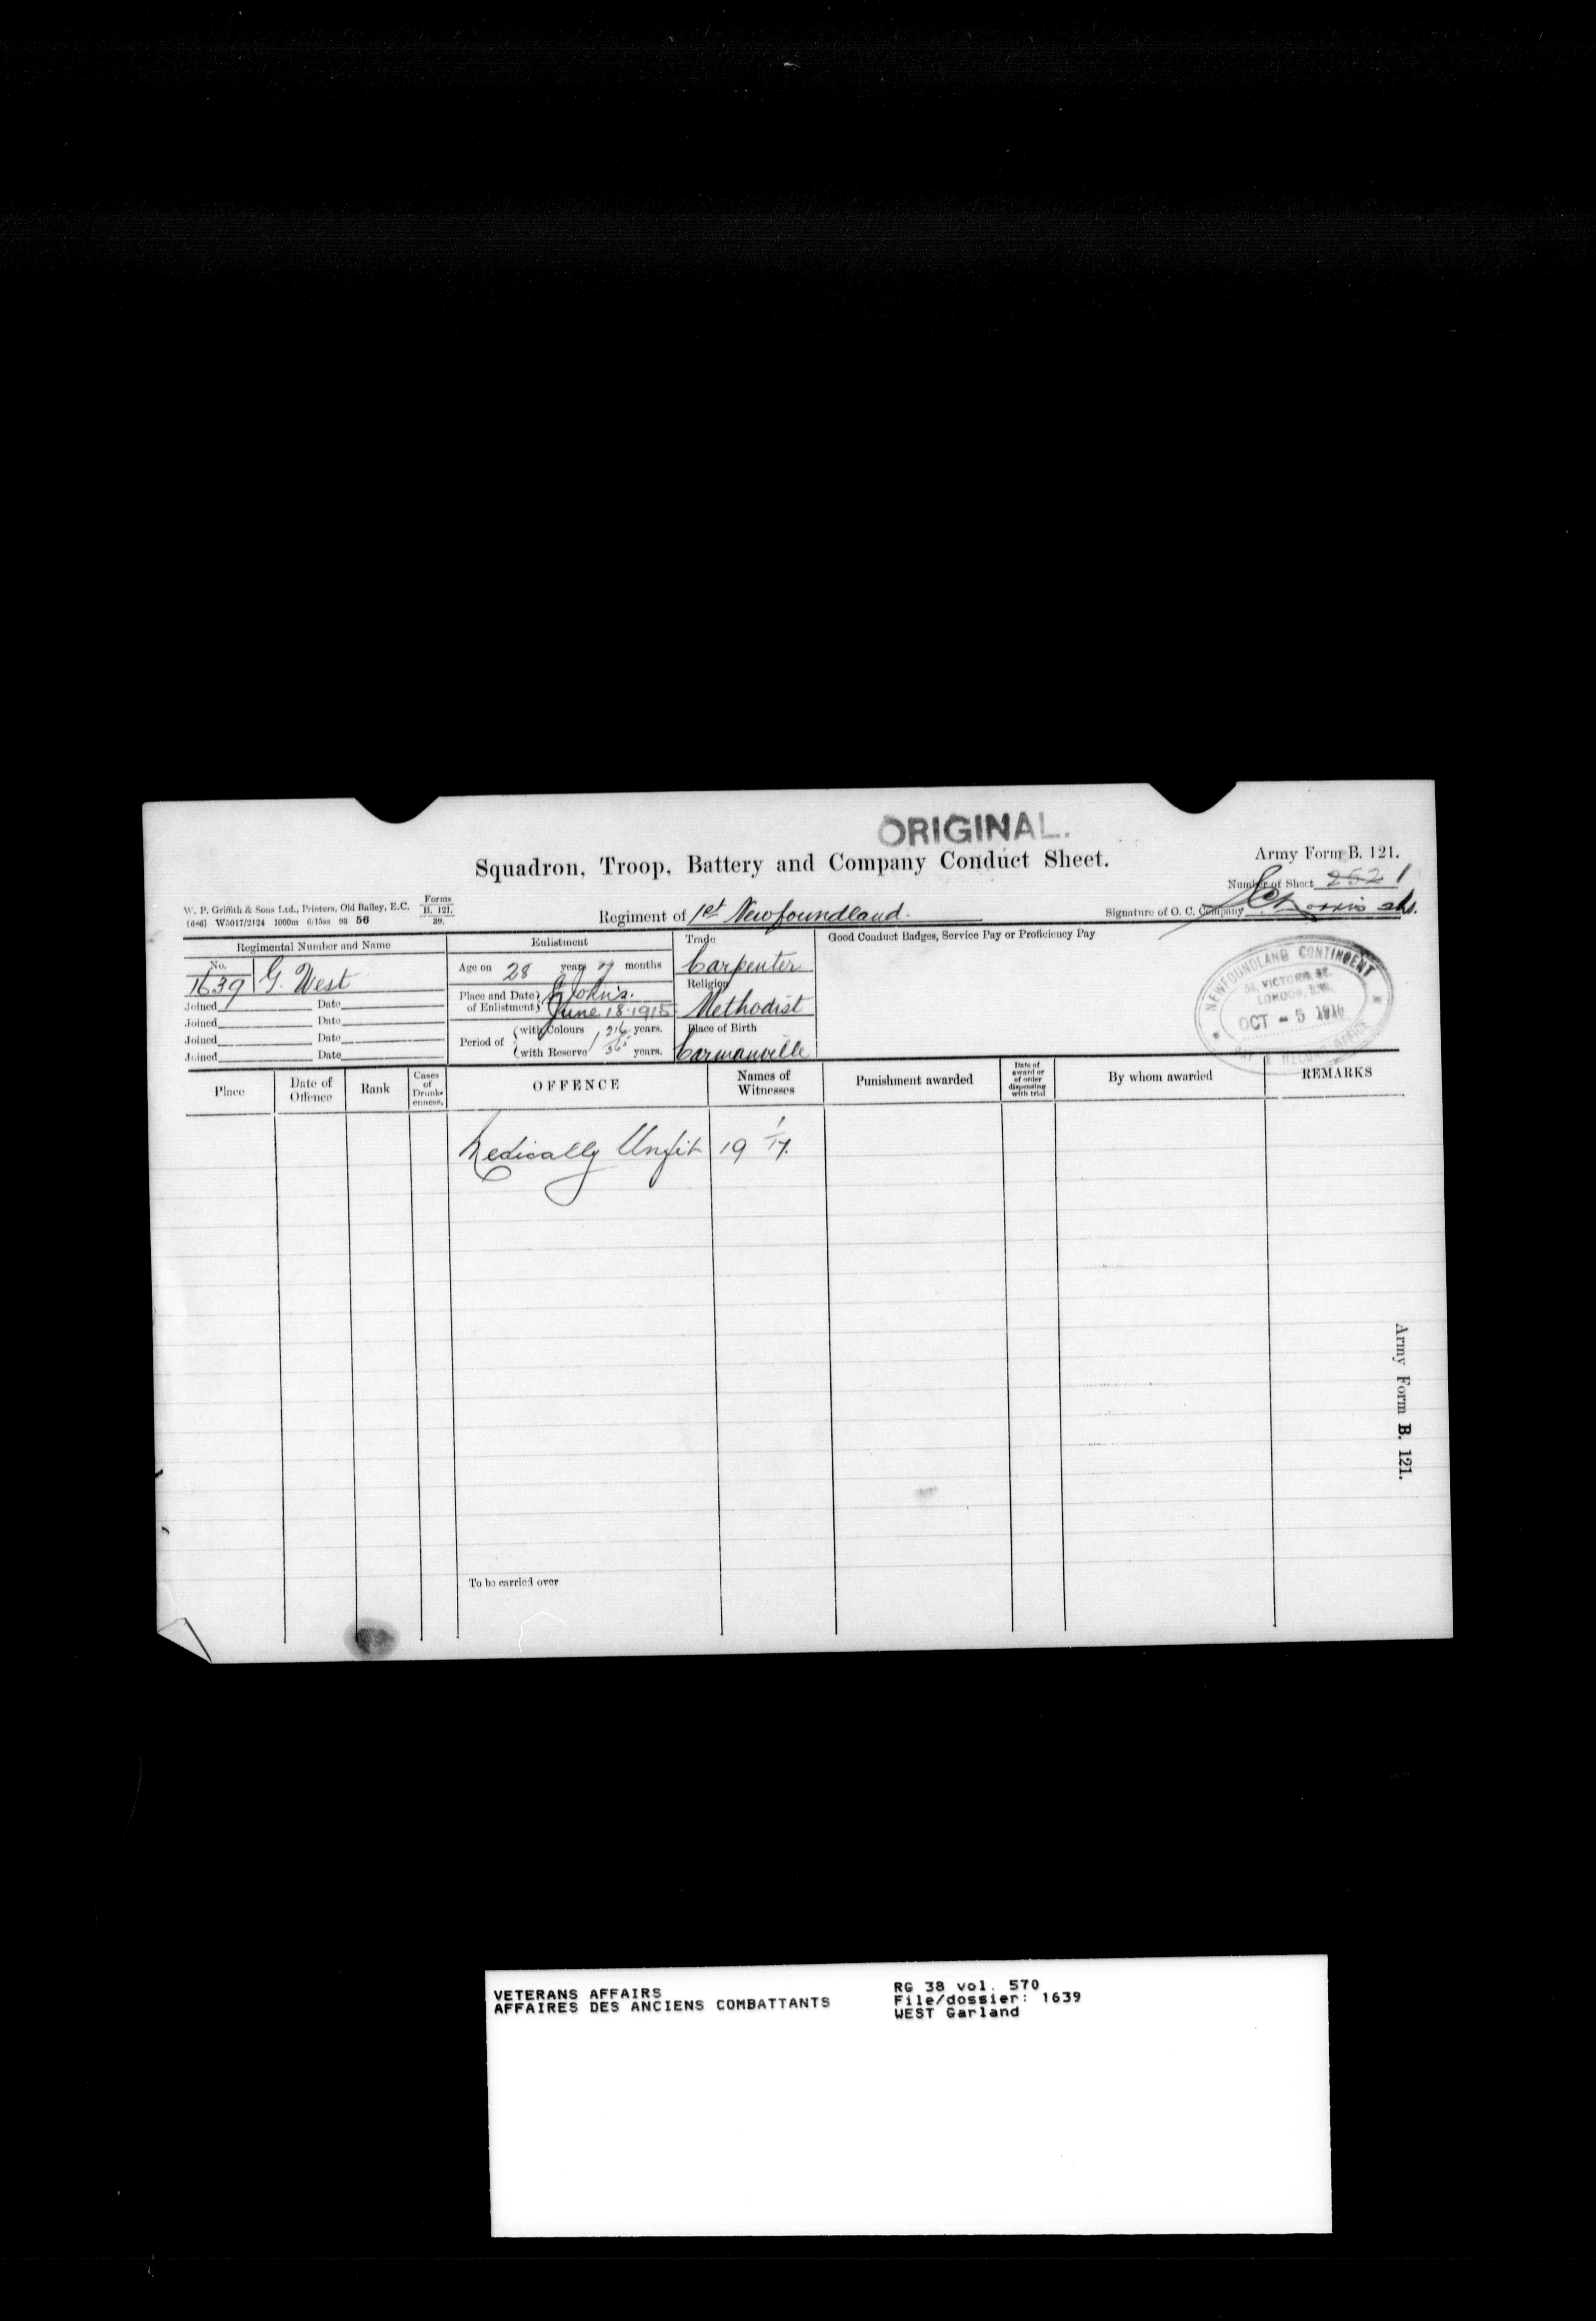 ORIGINAL.
Squadron, Troop, Battery and Company Conduct Sheet.
Army Form B. 121.
Number of Sheet 252 1
W. P. Griffith & Sons Ltd., Printers, Old Bailey, E.C.
Forms
B. 121.
39.
(6*6) W5017/2124 1000m 6/15ss 93 56
Regiment of 1st Newfoundland.
Signature of O. C. Company
Regimental Number and Name
Enlistment
Trade
Good Conduct Badges, Service Pay or Proficiency Pay
No.
1639 G. West
Age on 28 years 7 months
Carpenter
Religion
Methodist
Joined Date
Joined Date
Joined Date
Joined Date
Place and Date of Enlistment St John's.
June 18-1915
Period of with Colours years.
with Reserve years.
Place of Birth
Carmanville
NEWFOUNDLAND CONTINGENT
58, VICTORIA ST.
LONDON, S.W.
OCT - 5 1916
PAY & RECORD OFFICE
Place
Date of Offence
Rank
Cases of Drunkenness.
OFFENCE
Names of Witnesses
Punishment awarded
Date of award or of order dispensing with trial
By whom awarded
REMARKS
Medically Unfit 19 1/17.
To be carried over
Army Form B. 121.
VETERANS AFFAIRS
AFFAIRES DES ANCIENS COMBATTANTS
RG 38 vol. 570
File/dossier: 1639
WEST Garland